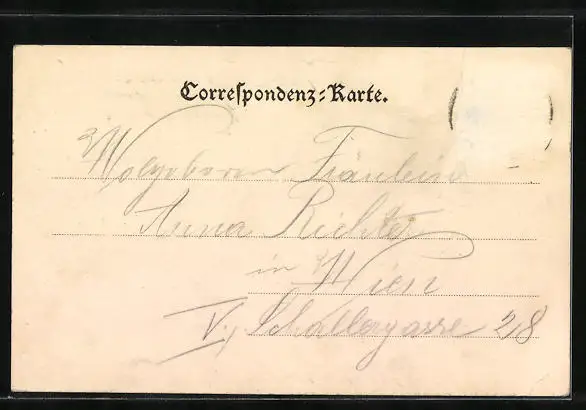 Correspondenz-Karte.
Wolgeboren Fräulein
Anna Richter
in Wien
V., Schallergasse 28